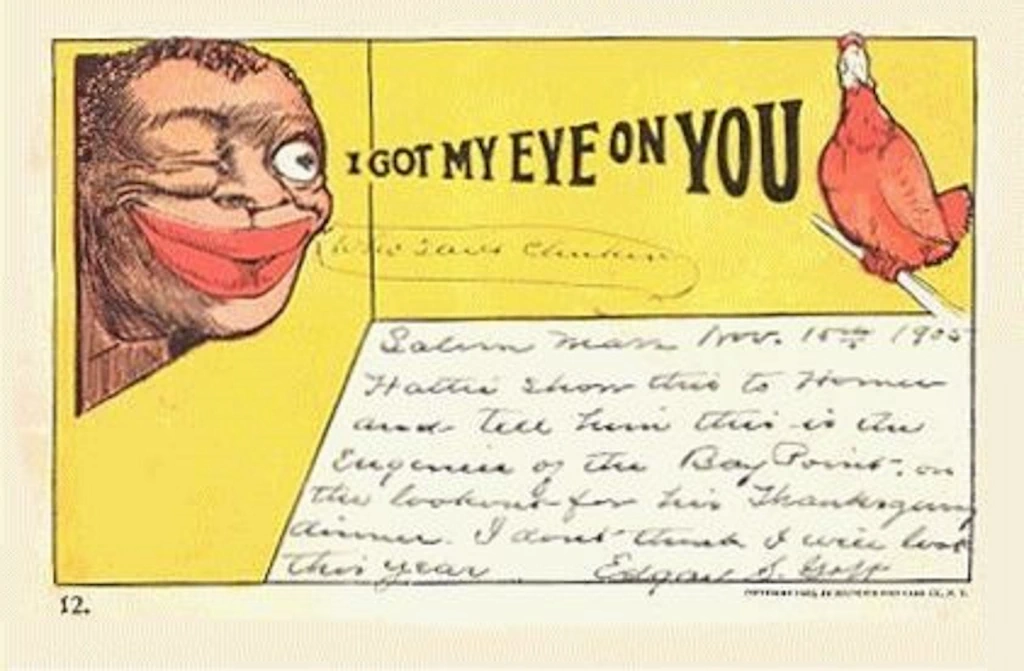 I GOT MY EYE ON YOU
Who said Chicken
Salem Mass Nov. 15th 1905
Hattie show this to Homer
and tell him this is the
Engenier of the Bay Point, on
the lookout for his Thanksgiving
dinner. I dont think I will look
this year Edgar S. Goff
12.